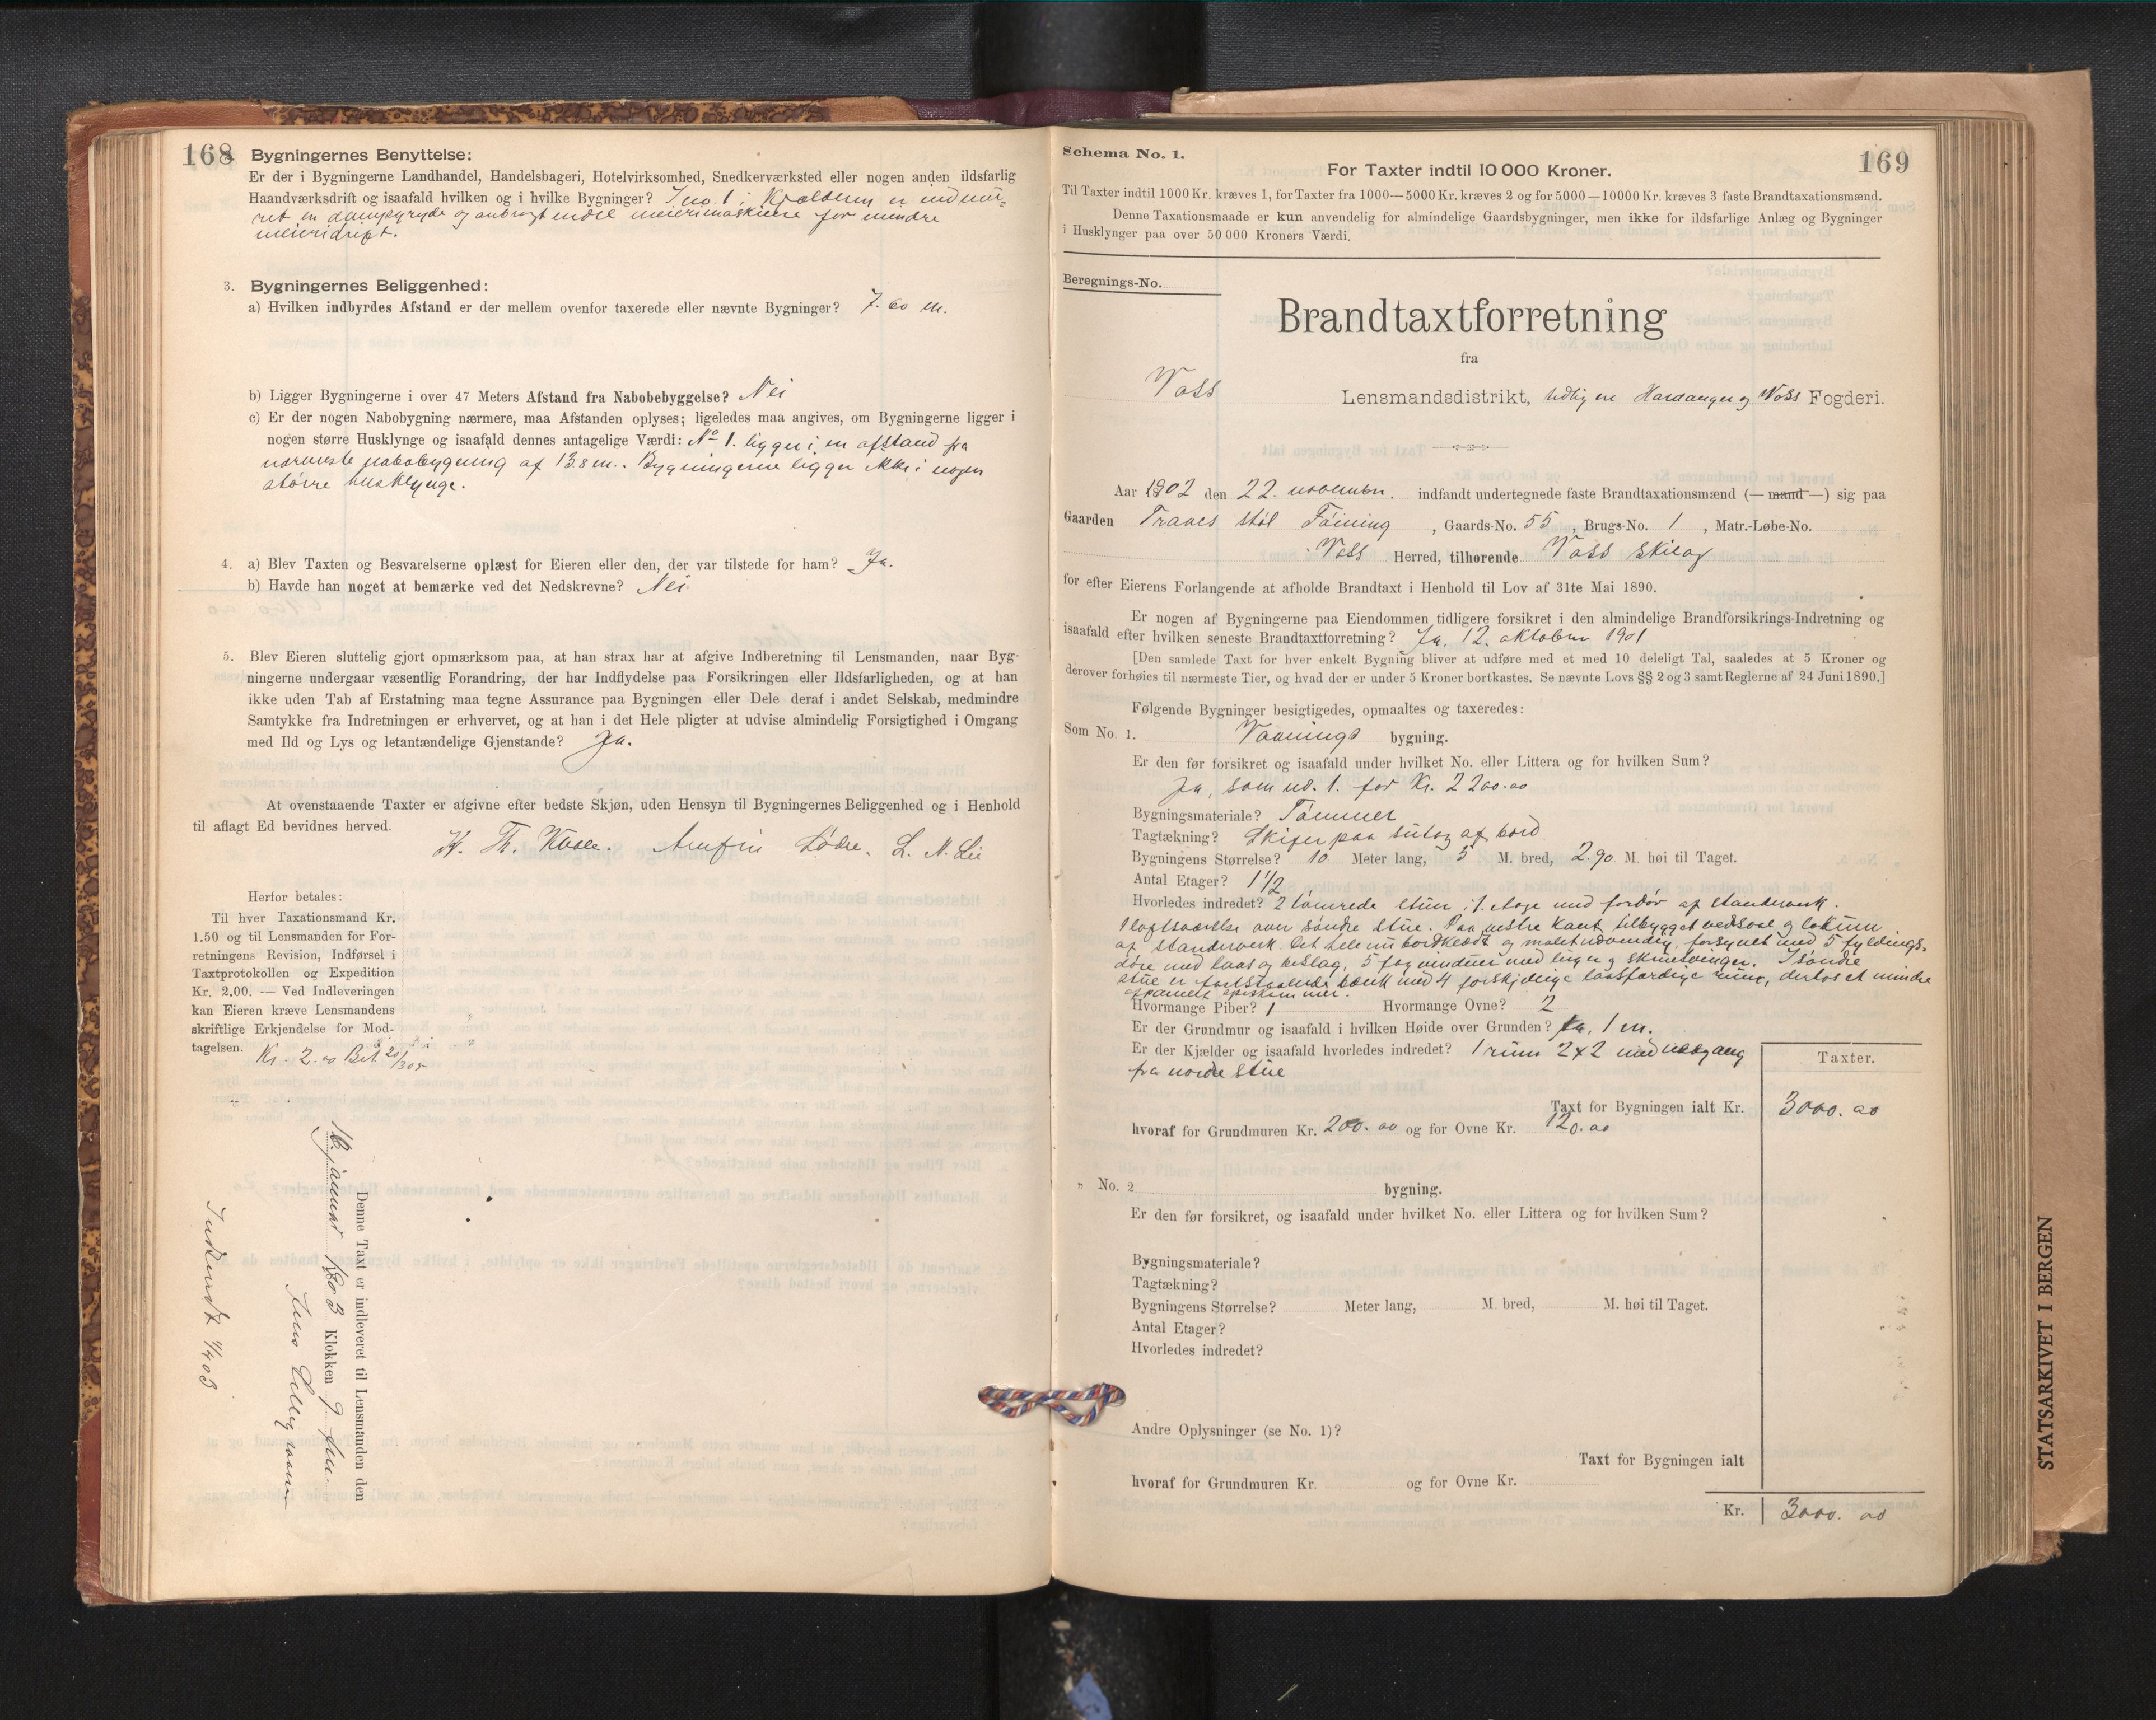 168
Bygningernes Benyttelse:
Er der i Bygningerne Landhandel, Handelsbageri, Hotelvirksomhed, Snedkerværksted eller nogen anden ildsfarlig
Haandværksdrift og isaafald hvilken og i hvilke Bygninger? I no. 1 i Kjælderen er indmu-
ret en dampgryde og anbragt endel meierimaskiner for mindre
meieridrift.
3. Bygningernes Beliggenhed:
a) Hvilken indbyrdes Afstand er der mellem ovenfor taxerede eller nævnte Bygninger? 7.60 m.
b) Ligger Bygningerne i over 47 Meters Afstand fra Nabobebyggelse? Nei
c) Er der nogen Nabobygning nærmere, maa Afstanden oplyses; ligeledes maa angives, om Bygningerne ligger i
nogen større Husklynge og isaafald dennes antagelige Værdi: No 1. ligger i en afstand fra
nærmeste nabobygning af 13.8 m. Bygningerne ligger ikke i nogen
større husklynge.
4. a) Blev Taxten og Besvarelserne oplæst for Eieren eller den, der var tilstede for ham? Ja.
b) Havde han noget at bemærke ved det Nedskrevne? Nei
5. Blev Eieren sluttelig gjort opmærksom paa, at han strax har at afgive Indberetning til Lensmanden, naar Byg-
ningerne undergaar væsentlig Forandring, der har Indflydelse paa Forsikringen eller Ildsfarligheden, og at han
ikke uden Tab af Erstatning maa tegne Assurance paa Bygningen eller Dele deraf i andet Selskab, medmindre
Samtykke fra Indretningen er erhvervet, og at han i det Hele pligter at udvise almindelig Forsigtighed i Omgang
med Ild og Lys og letantændelige Gjenstande? Ja.
At ovenstaaende Taxter er afgivne efter bedste Skjøn, uden Hensyn til Bygningernes Beliggenhed og i Henhold
til aflagt Ed bevidnes herved.
Arnfin L. N. Lie
Herfor betales:
Til hver Taxationsmand Kr.
1.50 og til Lensmanden for For-
retningens Revision, Indførsel i
Taxtprotokollen og Expedition
Kr. 2.00. — Ved Indleveringen
kan Eieren kræve Lensmandens
skriftlige Erkjendelse for Mod-
tagelsen. Kr. 2.00 Bet.
Denne Taxt er indleveret til Lensmanden den
18 januar 1903 Klokken 9 fm.
Indsendt
169
Schema No. 1.
For Taxter indtil 10 000 Kroner.
Til Taxter indtil 1000 Kr. kræves 1, for Taxter fra 1000—5000 Kr. kræves 2 og for 5000—10000 Kr. kræves 3 faste Brandtaxationsmænd.
Denne Taxationsmaade er kun anvendelig for almindelige Gaardsbygninger, men ikke for ildsfarlige Anlæg og Bygninger
i Husklynger paa over 50 000 Kroners Værdi.
Beregnings-No.
Brandtaxtforretning
fra
Voss Lensmandsdistrikt, Hardanger og Voss Fogderi.
Aar 1902 den 22. november. indfandt undertegnede faste Brandtaxationsmænd (—mand—) sig paa
Gaarden , Gaards-No. 55 , Brugs-No. 1 , Matr.-Løbe-No.
Voss Herred, tilhørende Voss Skilag
for efter Eierens Forlangende at afholde Brandtaxt i Henhold til Lov af 31te Mai 1890.
Er nogen af Bygningerne paa Eiendommen tidligere forsikret i den almindelige Brandforsikrings-Indretning og
isaafald efter hvilken seneste Brandtaxtforretning? Ja, 12. oktober 1901
[Den samlede Taxt for hver enkelt Bygning bliver at udføre med et med 10 deleligt Tal, saaledes at 5 Kroner og
derover forhøies til nærmeste Tier, og hvad der er under 5 Kroner bortkastes. Se nævnte Lovs §§ 2 og 3 samt Reglerne af 24 Juni 1890.]
Følgende Bygninger besigtigedes, opmaaltes og taxeredes:
Som No. 1. Vaanings bygning.
Er den før forsikret og isaafald under hvilket No. eller Littera og for hvilken Sum?
Ja, som no. 1. for Kr. 2200.00
Bygningsmateriale? Tømmer
Tagtækning? Skifer paa sutag af bord
Bygningens Størrelse? 10 Meter lang, 5 M. bred, 2.90 M. høi til Taget.
Antal Etager? 1 1/2
Hvorledes indredet? 2 tømrede stuer i 1. etage med fordør af standerverk.
1 loftsværelse over søndre stue. Paa vestre kant tilbygget vedskot og lokum
af standerverk. Det hele nu bordklædt og malet udvendig, forsynet med 5 fyldings-
døre med laas og beslag, 5 fag vinduer med luger og skruesvinger. I søndre
stue er fastslaaende bænk med 4 forskjellige laasfærdige rum, derhos et mindre
spiskammer.
Hvormange Piber? 1 Hvormange Ovne? 2
Er der Grundmur og isaafald i hvilken Høide over Grunden? Ja, 1 m.
Er der Kjælder og isaafald hvorledes indredet? 1 rum 2x2 med nedgang
fra nordre stue
Taxter.
Taxt for Bygningen ialt Kr. 3000.00
hvoraf for Grundmuren Kr. 200.00 og for Ovne Kr. 120.00
„ No. 2 bygning.
Er den før forsikret, og isaafald under hvilket No. eller Littera og for hvilken Sum?
Bygningsmateriale?
Tagtækning?
Bygningens Størrelse? Meter lang, M. bred, M. høi til Taget.
Antal Etager?
Hvorledes indredet?
Andre Oplysninger (se No. 1)?
Taxt for Bygningen ialt
hvoraf for Grundmuren Kr. og for Ovne Kr.
Kr. 3000.00
STATSARKIVET I BERGEN